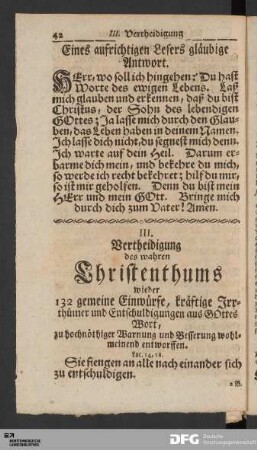 42 III. Vertheidigung
Eines aufrichtigen Lesers gläubige
Antwort.
HErr, wo soll ich hingehen? Du hast
Worte des ewigen Lebens. Laß
mich glauben und erkennen, daß du bist
Christus, der Sohn des lebendigen
GOttes; Ja lasse mich durch den Glau-
ben, das Leben haben in deinem Namen.
Ich lasse dich nicht, du segnest mich denn.
Ich warte auf dein Heil. Darum er-
barme dich mein, und bekehre du mich,
so werde ich recht bekehret; hilf du mir,
so ist mir geholfen. Denn du bist mein
HErr und mein GOtt. Bringe mich
durch dich zum Vater! Amen.
III.
Vertheidigung
des wahren
Christenthums
wieder
132 gemeine Einwürfe, kräftige Irr-
thümer und Entschuldigungen aus GOttes
Wort,
zu hochnöthiger Warnung und Besserung wohl-
meinend entworffen.
Luc. 14, 18.
Sie fiengen an alle nach einander sich
zu entschuldigen.
DFG Deutsche
Forschungsgemeinschaft